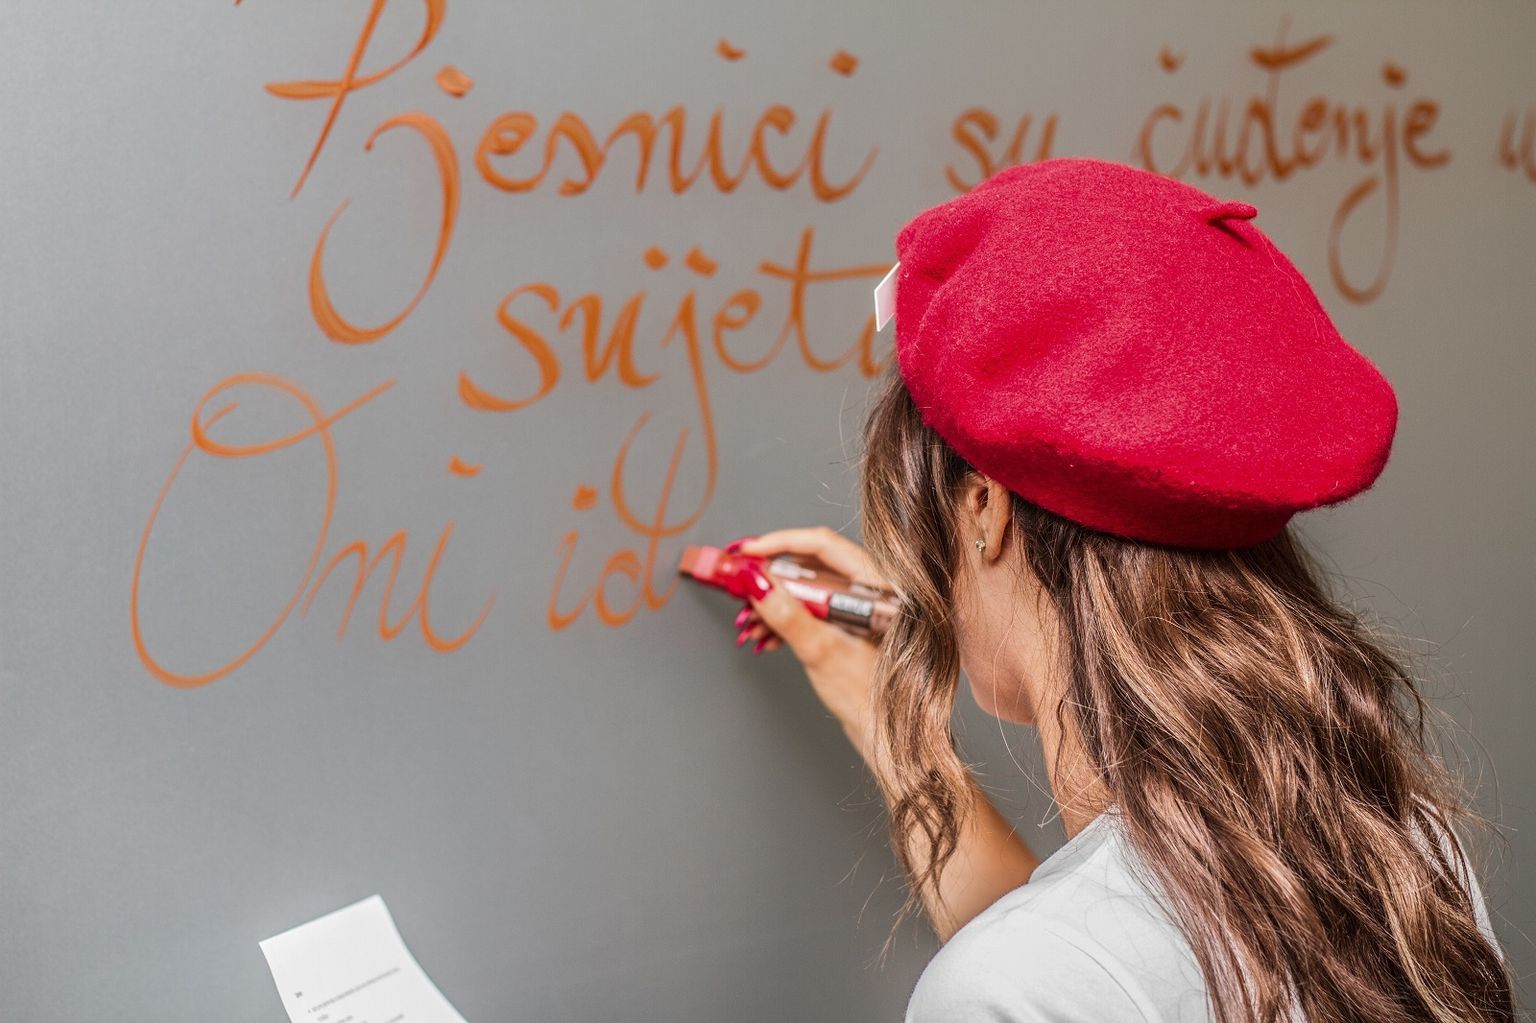 Pjesnici su čuđenje u
sujetu
Oni id